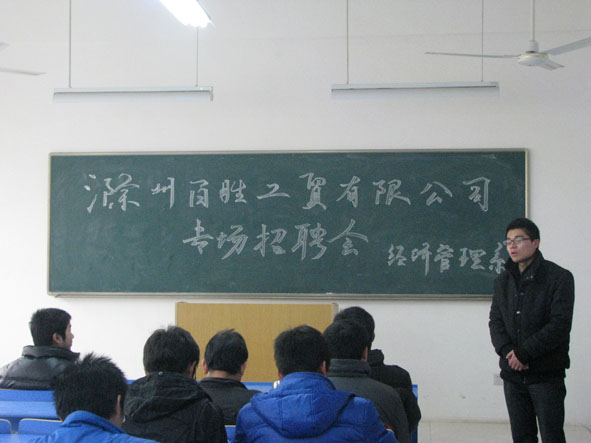 滁州百胜工贸有限公司
专场招聘会
经济管理系